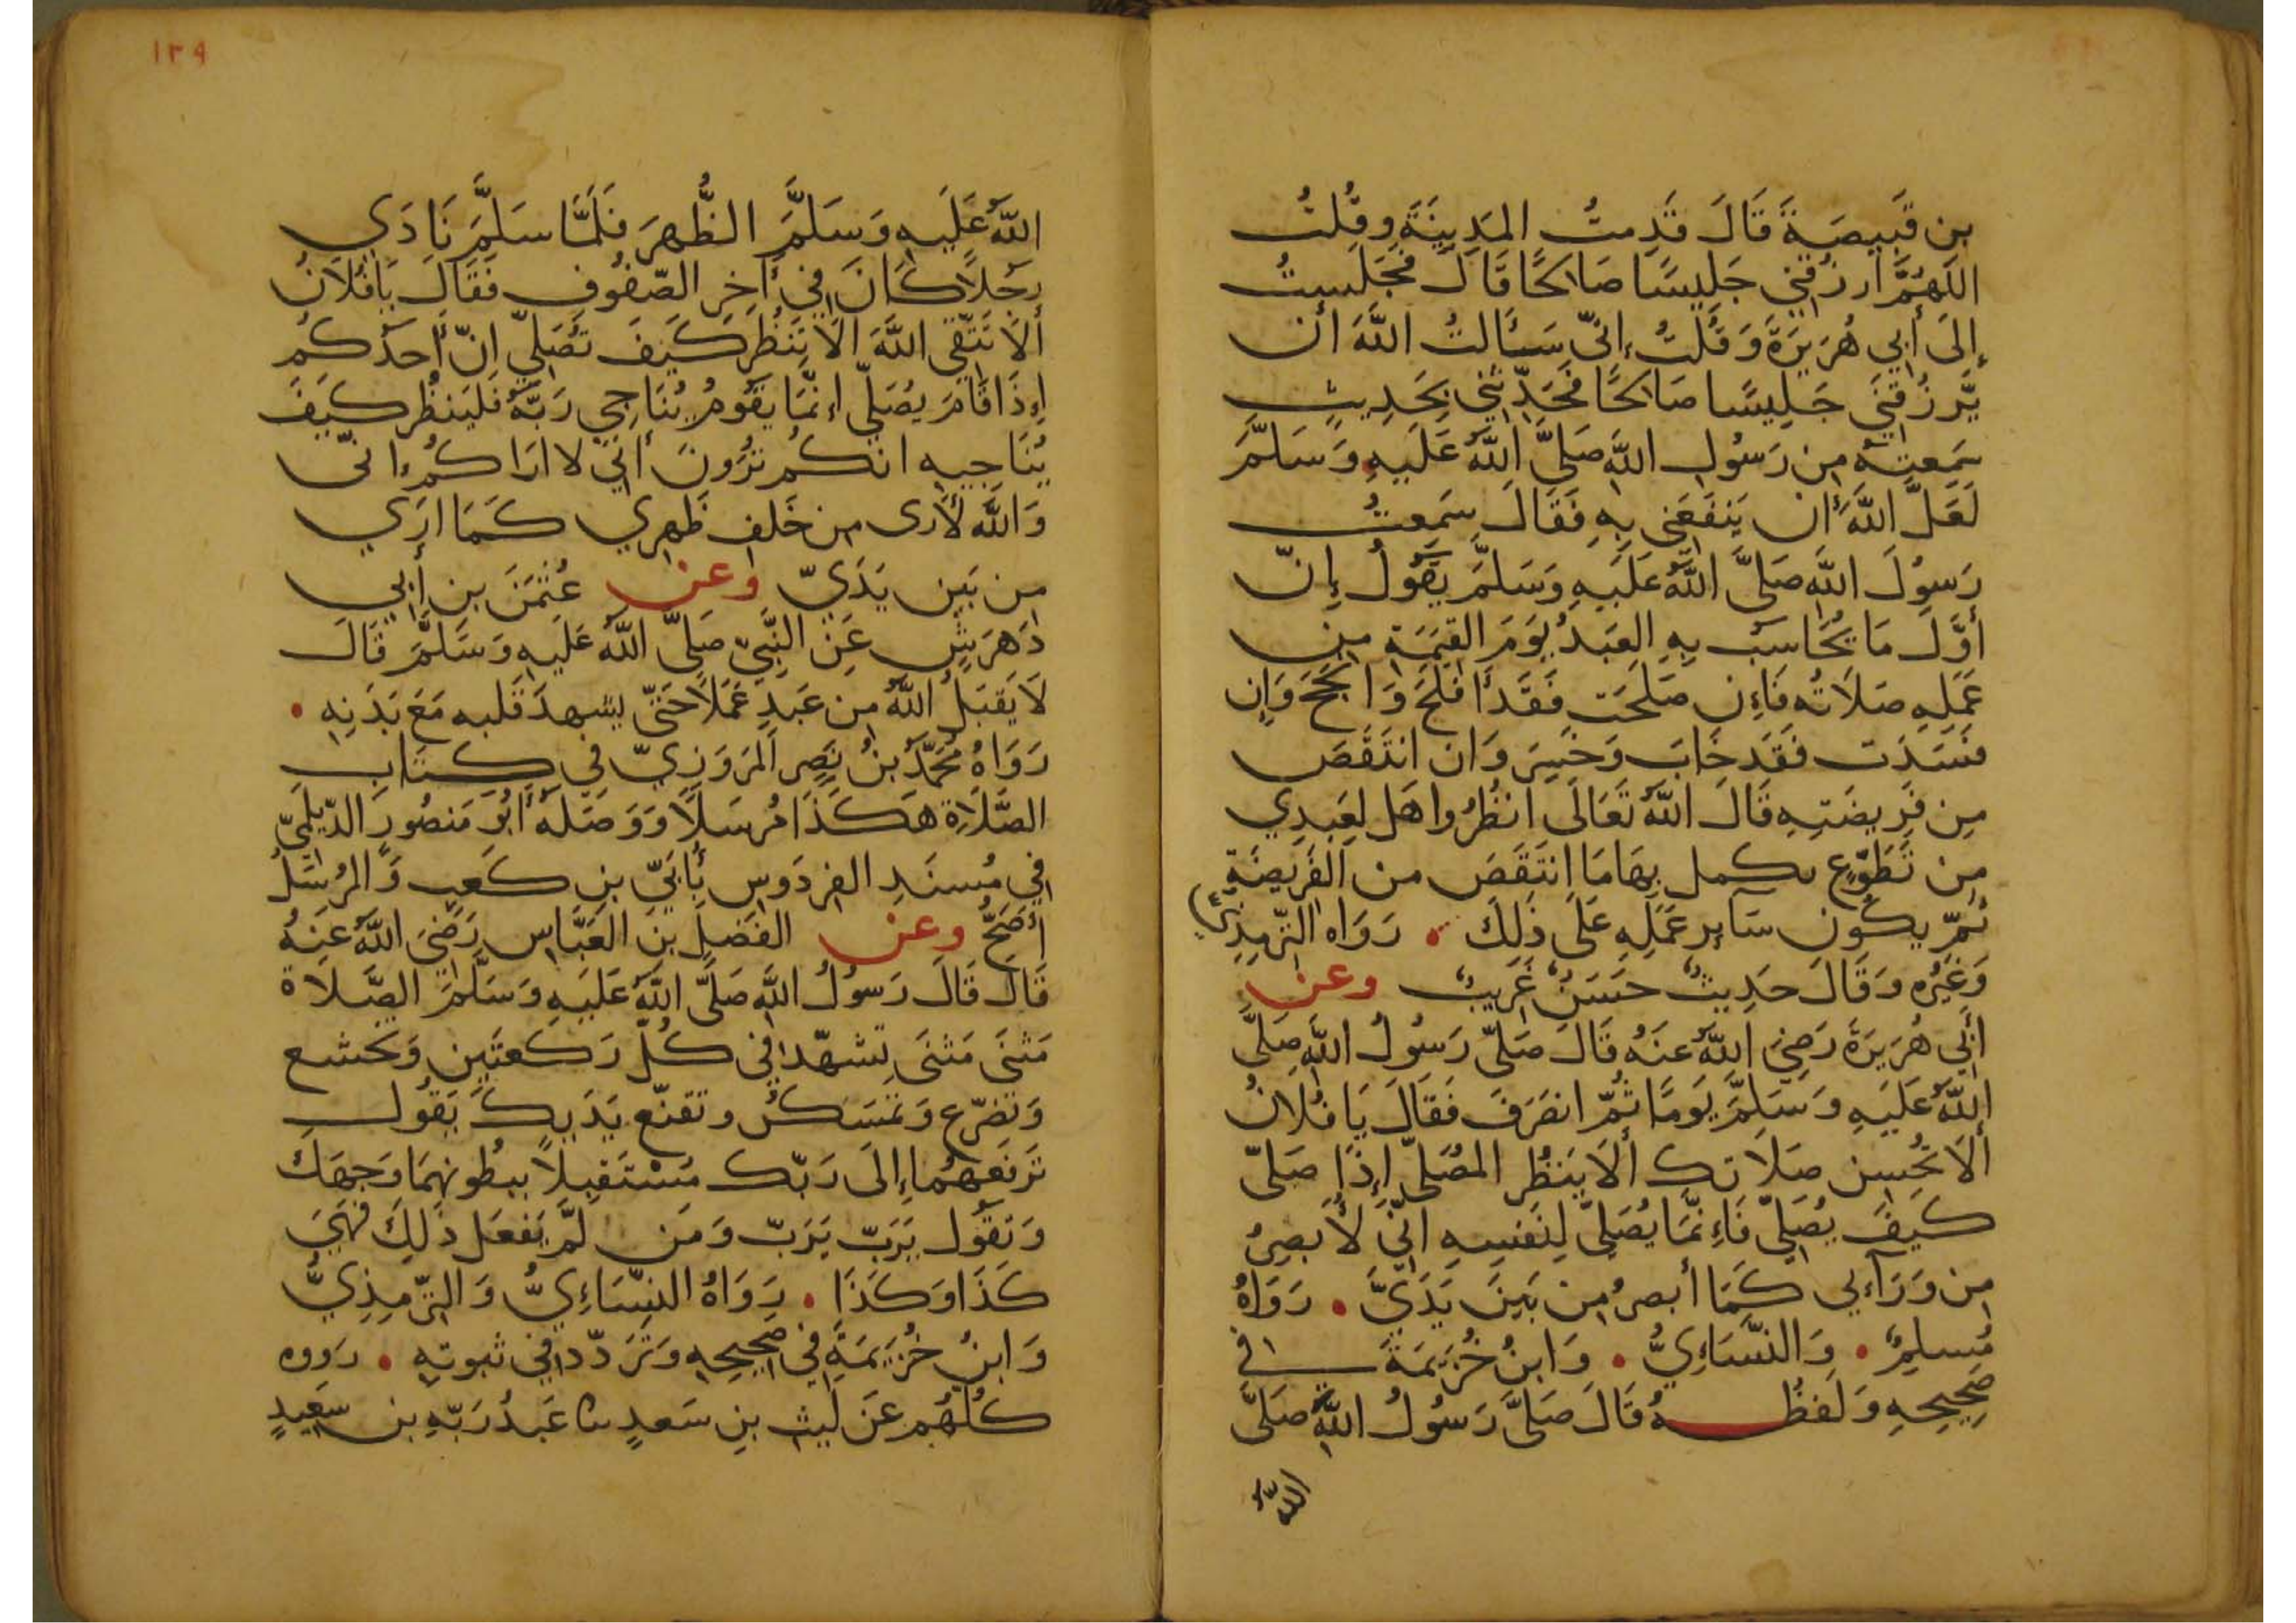 بِن قَبِيصَةَ قَالَ قَدِمتُ المَدِينَةَ وقُلتُ
اللَّهُمَّ ارزُقنِي جَلِيسًا صَالحًا قَالَ فَجَلَستُ
إِلَى أَبِي هُرَيرَةَ وَقُلتُ إِنّي سَأَلتُ اللَّهَ أن
يَّرزُقَنِي جَلِيسًا صَالحًا فَحَدِّثنِي بِحَدِيثٍ
سَمِعتَهُ مِن رَسُولِ اللَّهِ صَلَّى اللَّهُ عَلَيهِ وَسَلَّمَ
لَعَلَّ اللَّهَ أن يَنفَعَنِي بِهِ فَقَالَ سَمِعتُ
رَسُولَ اللَّهِ صَلَّى اللَّهُ عَلَيهِ وَسَلَّمَ يَقُولُ إِنّ
أوَّلَ مَا يُحَاسَبُ بِهِ العَبدُ يَومَ القِيَمَةِ مِن
عَمَلِهِ صَلَاتُه فَإِن صَلَحَت فَقَد أفلَحَ وَانجَحَ وَإِن
فَسَدَت فَقَد خَابَ وَخَسِرَ وَان انتَقَصَ
مِن فَرِيضَتِهِ قَالَ اللَّهُ تَعَالَى انظُرُوا هَل لِعَبدِي
مِن تَطَوُّعٍ يكمل بِهَا مَا انتَقَصَ من الفَرِيضَةِ
ثُمّ يكُون سَائِر عَمَلِهِ عَلَى ذَلِكَ • رَوَاه التِّرمِذِيُّ
وَغَيرُه وَقَالَ حَدِيثٌ حَسَنٌ غَرِيبٌ وعن
أَبِي هُرَيرَةَ رَضِيَ اللَّهُ عنَهُ قَالَ صَلَّى رَسُولُ اللَّهِ صَلَّى
اللَّهُ عَلَيهِ وَسَلَّمَ يَومًا ثُمّ انصَرَفَ فَقَالَ يَا فُلَانُ
ألَا تُحسِن صَلَاتك ألَا يَنظُر المُصَلّي إِذَا صَلّى
كَيفَ يُصَلِّي فَإِنَّمَا يُصَلِّي لِنَفسِهِ انّي لَأُبصِرُ
مِن وَرَآءِي كَمَا أبصرُ مِن بَينَ يَدَيَّ • رَوَاهُ
مُسلِمٌ • وَالنَّسَاءِيُّ • وَابنُ خُزَيمَةَ فِي
صَحِيحِهِ وَلَفظُهُ قَالَ صَلَّى رَسُولُ اللَّهِ صَلَّى
اللَّهُ
١٣٩
اللَّهُ عَلَيهِ وَسَلَّمَ الظُّهرَ فَلَمَّا سَلَّمَ نَادَي
رجُلًا كَانَ فِي أخِرِ الصّفُوفِ فَقَالَ يَا فُلَانُ
ألَا تَتَّقِي اللَّهَ ألَا تَنظُر كَيفَ تُصَلِّي إنّ أحَدكُم
إِذَا قَامَ يُصَلّي إنَّمَا يَقُومُ يُنَاجِي رَبَّهُ فَليَنظُر كَيفَ
يُنَاجِيهِ انكُم تَرُونَ أنّي لا ارَاكُم إنّي
وَاللَّهِ لَأرى مِن خَلفِ ظَهرِي كَمَا ارَي
مِن بَينِ يَدَيّ وعن عُثمَنَ بنِ أَبِي
دَهرَشٍ عَنِ النَّبِيّ صَلَّى اللَّهُ عَلَيهِ وَسَلَّمَ قَالَ
لَا يَقبَلُ اللَّهُ مِن عَبدٍ عَمَلًا حَتّى يشهدَ قَلبه مَعَ بَدَنِهِ •
رَوَاهُ مُحَمَّدُ بنُ نَصرِ المَروَزِيّ فِي كِتَابِ
الصَّلَاةِ هَكَذَا مُرسَلًا وَوَصَلَهُ أبُو مَنصُورٍ الدّيلَمِيّ
فِي مُسنَدِ الفِردَوسِ بِأُبَيّ بنِ كَعبٍ وَالمُرسَلُ
أَصَحُّ وعن الفَضلِ بنِ العَبَّاسِ رَضِيَ اللَّهُ عَنهُ
قَالَ قَالَ رَسُولُ اللَّهِ صَلَّى اللَّهُ عَلَيهِ وَسَلَّمَ الصَّلَاة
مَثنَى مَثنَى تشهّد فِي كُلّ رَكعَتَينِ وَتخشع
وَتضرّع وَتمَسكُن وتقنّع يَدَيكَ يَقُولُ
تَرفَعهُمَا إِلَى رَبّك مُستَقبِلًا ببطُونِهِمَا وَجهَكَ
وَتقُول يَرَبّ يَرَبّ وَمَن لَّم يَفعَل ذَلِكَ فَهيَ
كَذَا وَكَذَا • رَوَاهُ النسّاءِيُّ وَالتِّرمِذِيُّ
وَابنُ خُزَيمَةَ فِي صَحِيحِهِ وَتَرَدّد فِي ثبوتِهِ • رَووه
كُلُّهُم عَن لَيثِ بنِ سَعدٍ ثنا عَبدُ رَبّهِ بن سَعِيدٍ